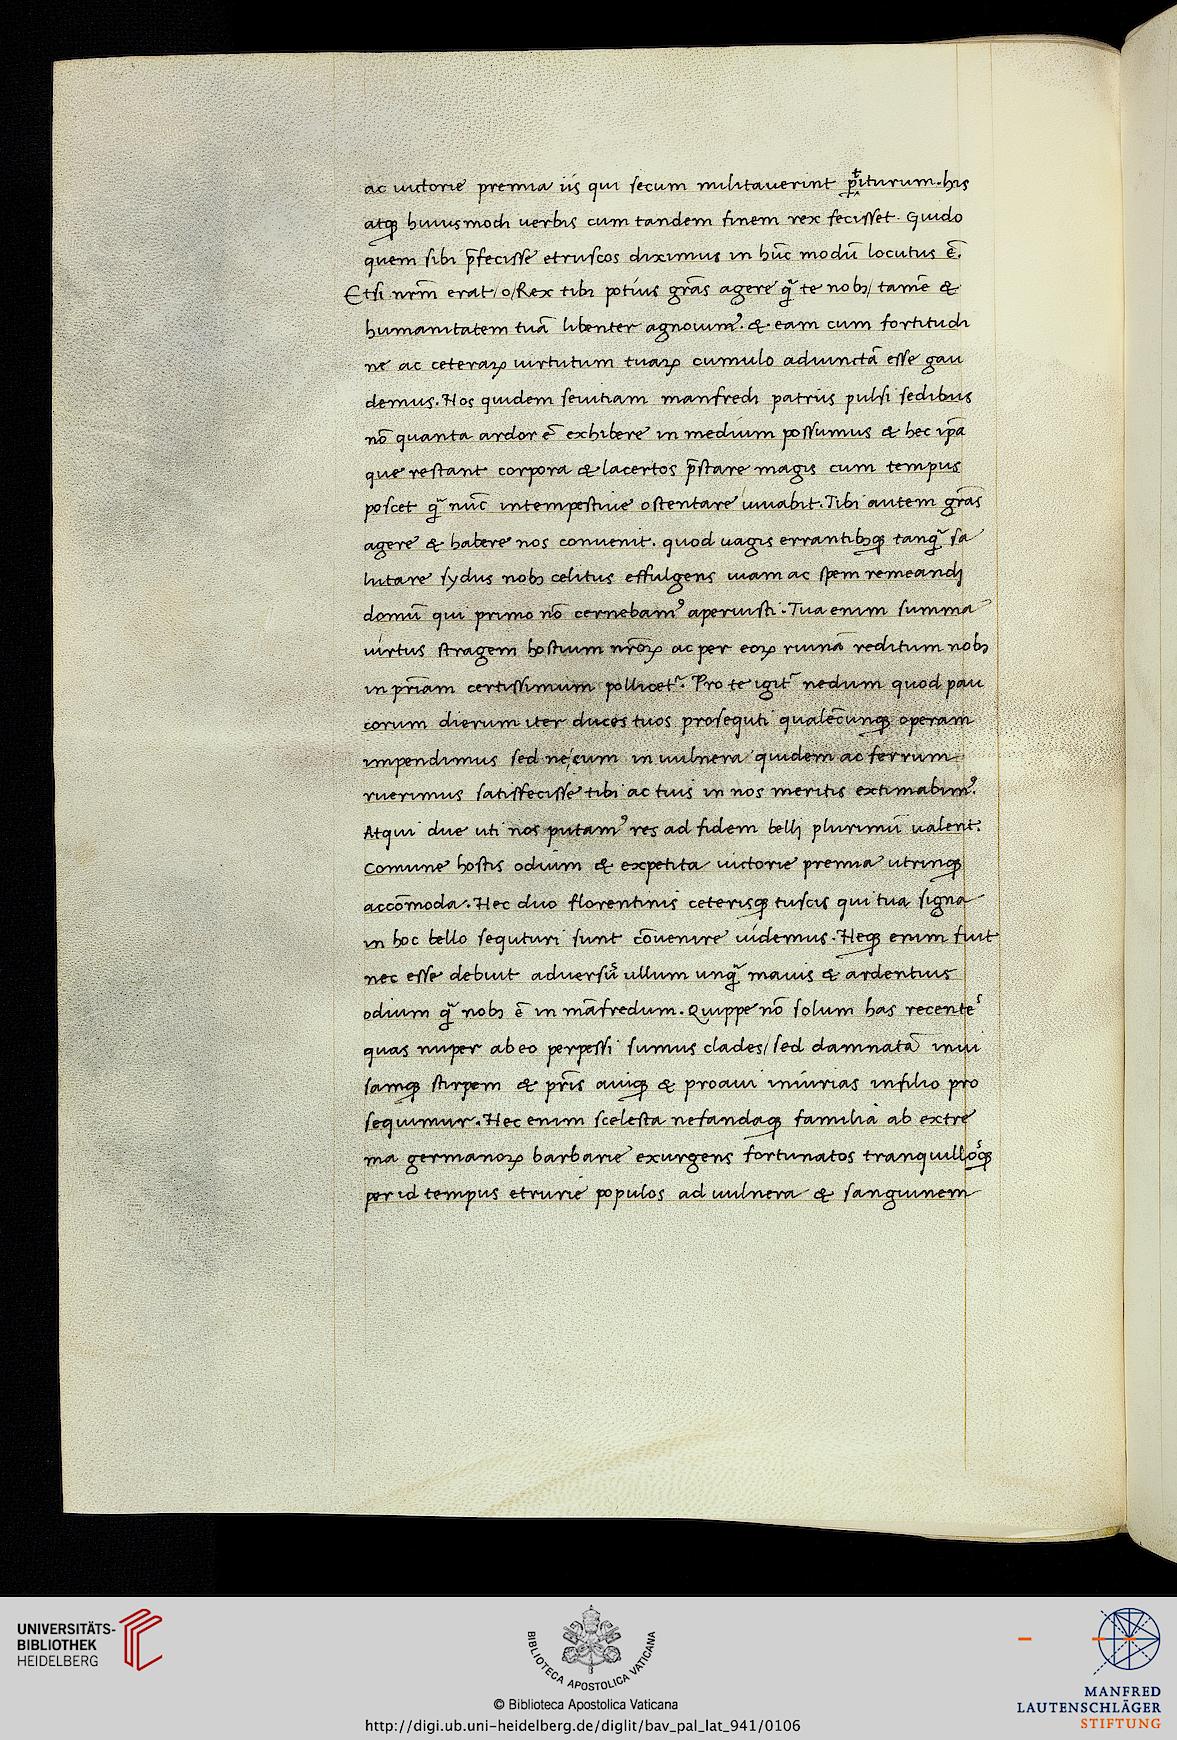 ac uictorie premia iis qui secum militauerint ꝑtiturum. his
atqꝫ huiusmodi uerbis cum tandem finem rex fecisset. Guido
quem sibi p̄fecisse etruscos diximus in hūc modū locutus ē.
Etsi nr̄m erat/o/Rex tibi potius gr̄as agere q̄ te nobꝫ/ tamē &
humanitatem tuā libenter agnouimꝰ. & eam cum fortitudi
ne ac ceteraꝝ uirtutum tuaꝝ cumulo adiunctā esse gau
demus. Nos quidem seuitiam manfredi patriis pulsi sedibus
nō quanta ardor ē exhibere in medium possumus & hec ip̄a
que restant corpora & lacertos p̄stare magis cum tempus
poscet q̄ nūc intempestiue ostentare iuuabit. Tibi autem gr̄as
agere & habere nos conuenit. quod uagis errantibꝫqꝫ tanq̄ sa
lutare sydus nobꝫ celitus effulgens uiam ac spem remeandi
domū qui primo nō cernebamꝰ aperuisti. Tua enim summa
uirtus stragem hostium nr̄oꝝ ac per eoꝝ ruinā reditum nobꝫ
in pr̄iam certissimum pollicet᷑. Pro te igit᷑ nedum quod pau
corum dierum iter duces tuos prosequti qualēcunqꝫ operam
impendimus sed ne/cum in uulnera quidem ac ferrum
ruerimus satisfecisse tibi ac tuis in nos meritis extimabimꝰ.
Atqui due uti nos putamꝰ res ad fidem belli plurimū ualent.
Comune hostis odium & expetita uictorie premia utrinqꝫ
accōmoda. Hec duo florentinis ceterisqꝫ tuscis qui tua signa
in hoc bello sequturi sunt cōuenire uidemus. Neqꝫ enim fuit
nec esse debuit aduersū ullum unq̄ maius & ardentius
odium q̄ nobꝫ ē in māfredum. Quippe nō solum has recentes
quas nuper ab eo perpessi sumus clades/ sed damnatā inui
samqꝫ stirpem & pr̄is auiqꝫ & proaui iniurias in filio pro
sequimur. Hec enim scelesta nefandaqꝫ familia ab extre
ma germanoꝝ barbarie exurgens fortunatos tranquillosqꝫ
per id tempus etrurie populos ad uulnera & sanguinem
UNIVERSITÄTS-
BIBLIOTHEK
HEIDELBERG
BIBLIOTECA APOSTOLICA VATICANA
© Biblioteca Apostolica Vaticana
http://digi.ub.uni-heidelberg.de/diglit/bav_pal_lat_941/0106
MANFRED
LAUTENSCHLÄGER
STIFTUNG